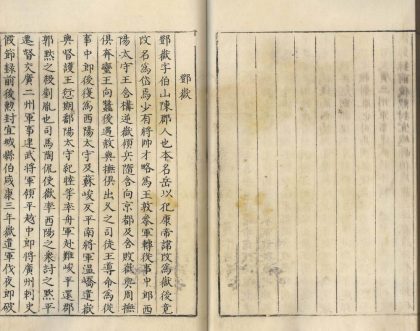 鄧嶽
鄧嶽字伯山陳郡人也本名岳以犯康帝諱改為嶽後竟
改名為岱焉少有將帥才略為王敦參軍轉從事中郎西
陽太守王含構逆嶽領兵隨含向京都及含敗嶽與周撫
俱奔蠻王向蠶後遇赦與撫俱出久之司徒王導命為從
事中郎後復為西陽太守及蘇峻反平南將軍溫嶠遣嶽
與督護王愆期鄱陽太守紀睦等率舟軍赴難峻平還郡
郭黙之殺劉胤也司馬陶侃使嶽率西陽之衆討之黙平
遷督交廣二州軍事建武將軍領平越中郎將廣州刺史
假節錄前後勲封宜城縣伯咸康三年嶽遣軍伐夜郎破